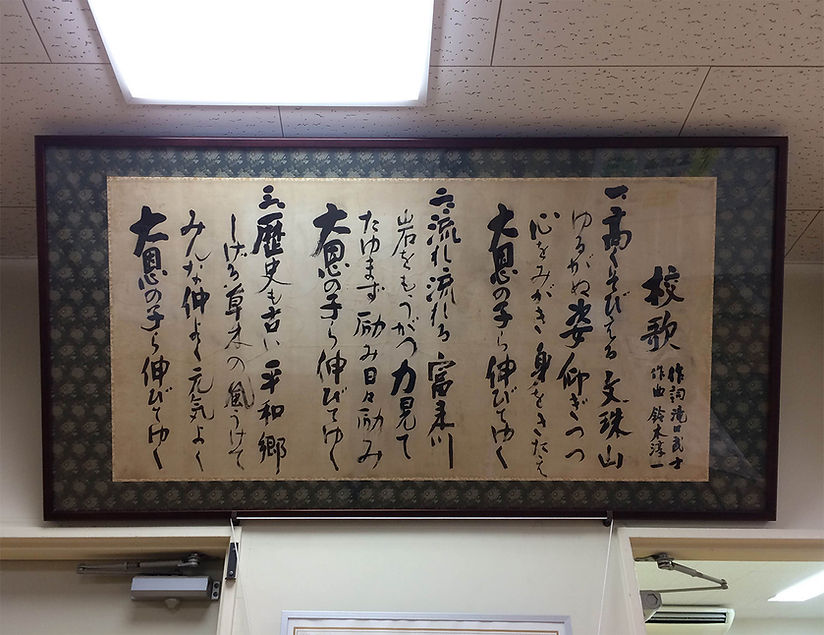 校歌
作詞 滝田武士
作曲 鈴木淳一
一、高くそびえる文珠山
ゆるがぬ姿仰ぎつつ
心をみがき身をきたえ
大恩の子ら伸びてゆく
二、流れ流れる富来川
岩をもうがつ力見て
たゆまず励み日々励み
大恩の子ら伸びてゆく
三、歴史も古い平和郷
しげる草木の風うけて
みんな仲よく元気よく
大恩の子ら伸びてゆく